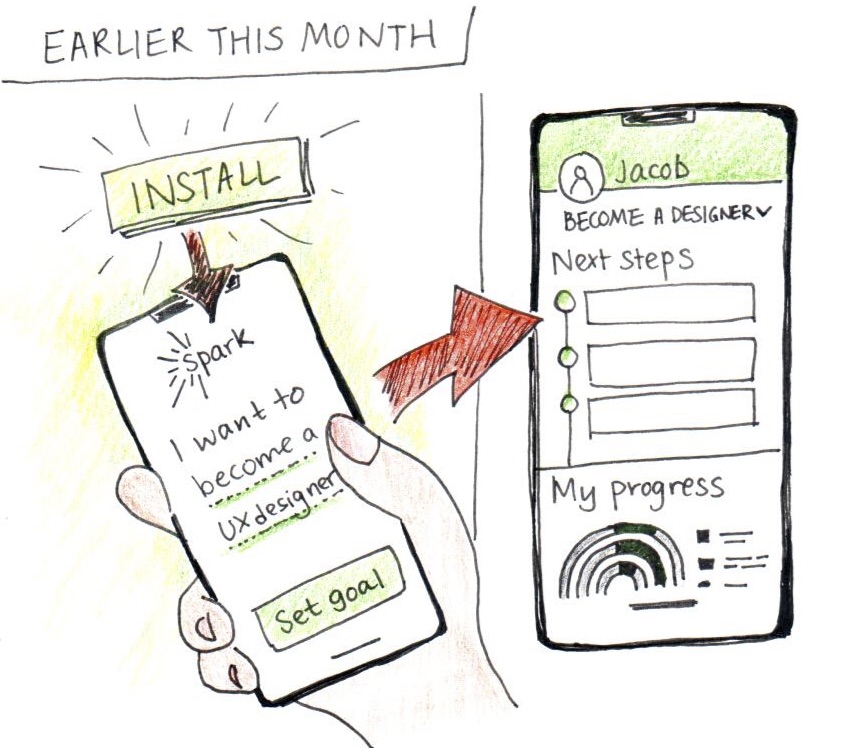 EARLIER THIS MONTH
INSTALL
Spark
I want to
become a
UX designer
Set goal
Jacob
BECOME A DESIGNER
Next steps
My progress